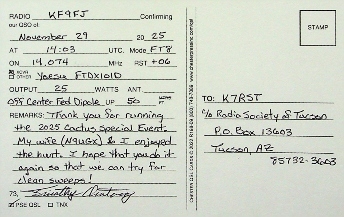 RADIO KF9FJ Confirming
our QSO of:
November 29 2025
AT 14:03 UTC. Mode FT8
ON 14.074 MHz RST +06
XCVR
OTHER Yaesu FTDX101D
OUTPUT 25 WATTS ANT.
Off Center Fed Dipole UP 50
REMARKS: Thank you for running
the 2025 Cactus Special Event.
My wife (N9UGX) & I enjoyed
the hunt. I hope that you do it
again so that we can try for
clean sweeps!
73,
PSE QSL TNX
STAMP
TO: K7RST
c/o Radio Society of Tucson
P.O. Box 13603
Tucson, AZ
85732-3603